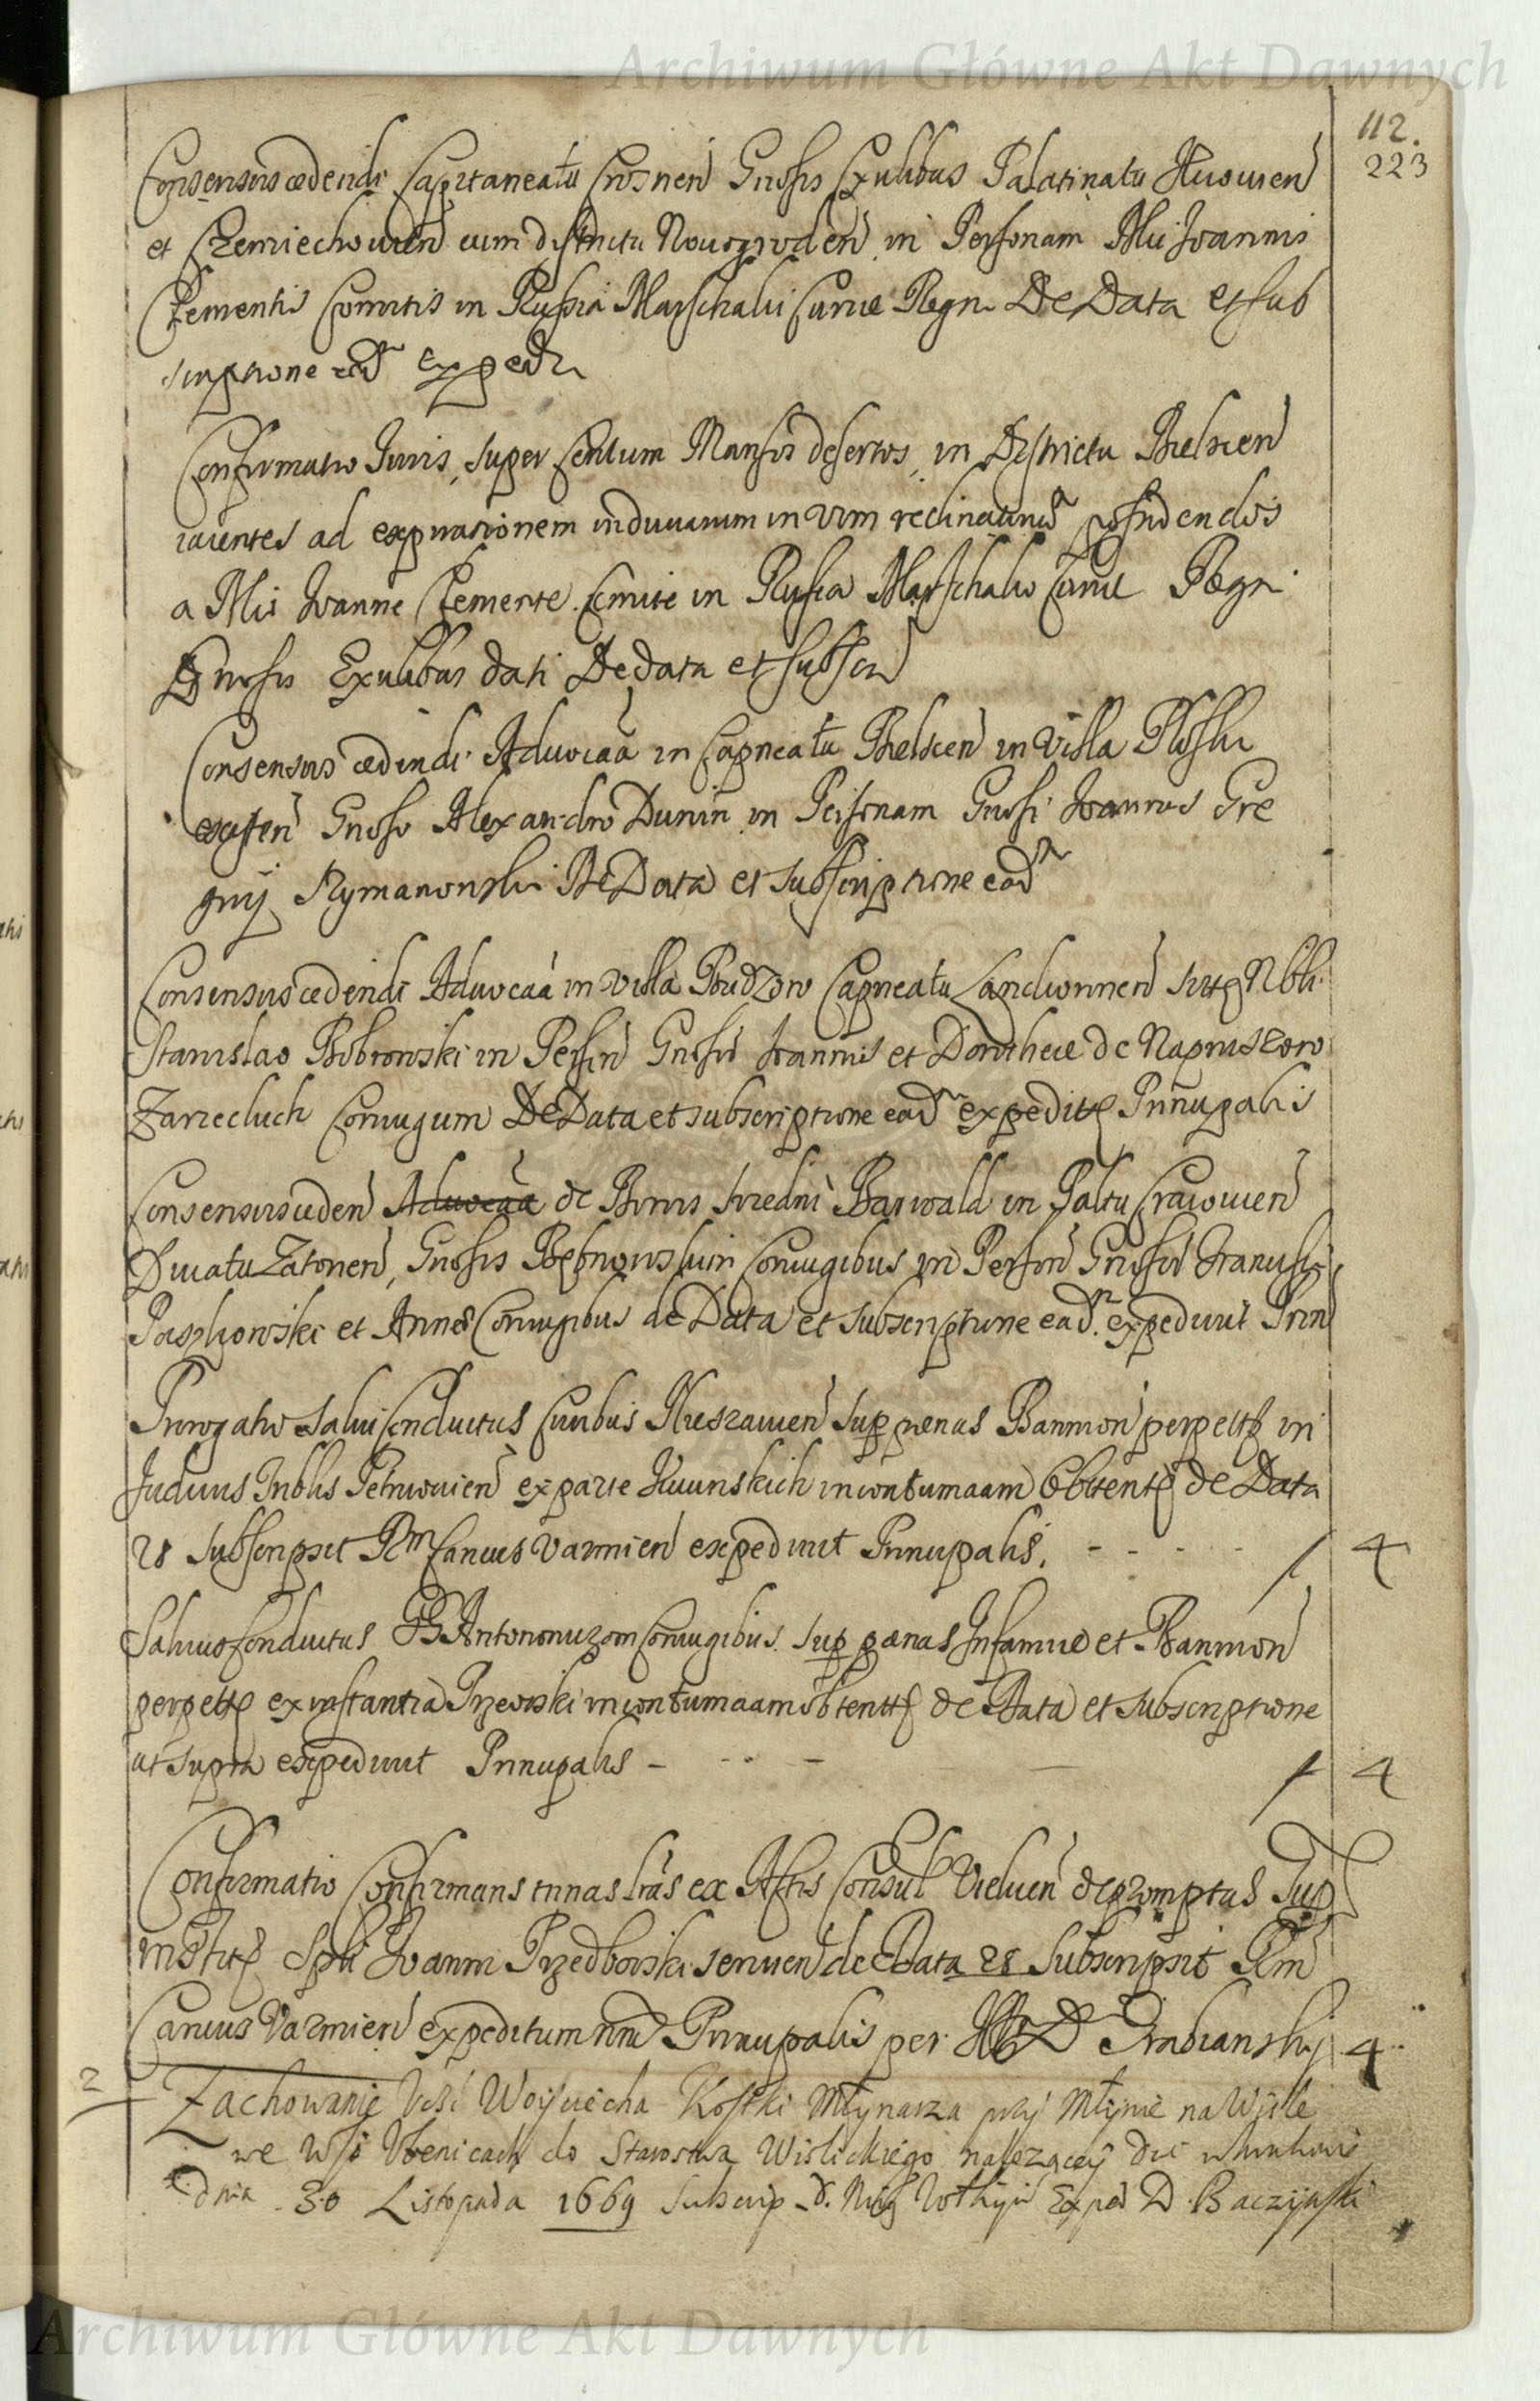 Archiwum Główne Akt Dawnych
112.
223
Consensus cedendi Capitaneatu Crosnen Gnosis Exulibus Palatinatu Kiiovien
et Czerniechovien cum districtu Novogroden in Personam Mci Joannis
Clementis Comitis in Russia Marschalci Curiæ Regni De Data et sub
scriptione ead exped
Confirmatio Juris, super Centum Mansos desertos, in Districtu Belscen
iacentes ad expirationem induciarum in vim reclinatorii possidendos
a Mco Joanne Clemente Comite in Russia Marschalco Curiæ Regni
Gnosis Exulibus dati De data et subscr
Consensus cedendi Advocaa in Capneatu Belscen in Villa Ploski
existen Gnoso Alexandro Dunin in Personam Gnosi Joannis Gre
gorij Rymanowski De Data et subscriptione ead
Consensus cedendi Advocaa in Villa Budzow Capneatu Lanckoronnen sitæ Nbli
Stanislao Bobrowski in Persin Gnosor Joannis et Dorotheæ de Napruszewo
Zarzecluch Coniugum De Data et subscriptione ead expedit Principalis
Consensus ceden Advocaa de Bonis sredni Barwald in Paltu Cracovien
Ducatu Zatorien, Gnosis Rebrowskim Coniugibus in Person Gnosor Franciski
Paszkowski et Annæ Coniugibus de Data et subscriptione ead. expedivit Prin
Prorogatio salvi Conductus Civibus Nieszavien sup pænas Bannion perpetuæ in
Judiciis Tribblis Petricovien ex parte Kuunskich in contumaam Obtent de Data
28 subscripsit Rm Cancius Varmien expedivit Principalis. - - - - / 4
Salvus Conductus GG Antononuzom Coniugibus sup pænas Infamiæ et Bannion
perpetuæ ex instantia Przewski in contumaam obtentæ de Data et subscriptione
ut supra expedivit Principalis - - - - / 4
Confirmatio Confirmans trinas lras ex Actis Consul Vielunen depromptas Sup
Joanni Przedborski servien de Data 28 Subscripsit Rm
Cancius Varmien expeditum Principalis per D Grabianskj 4
2
Zachowanie Wojciecha Kostki Młynarza przj Młynie na Wisle
we Wsi Ucenicach do Starostwa Wislickiego nalezącey
dnia 30 Listopada 1669 Subscrip Exped D. Baczynski
Archiwum Główne Akt Dawnych